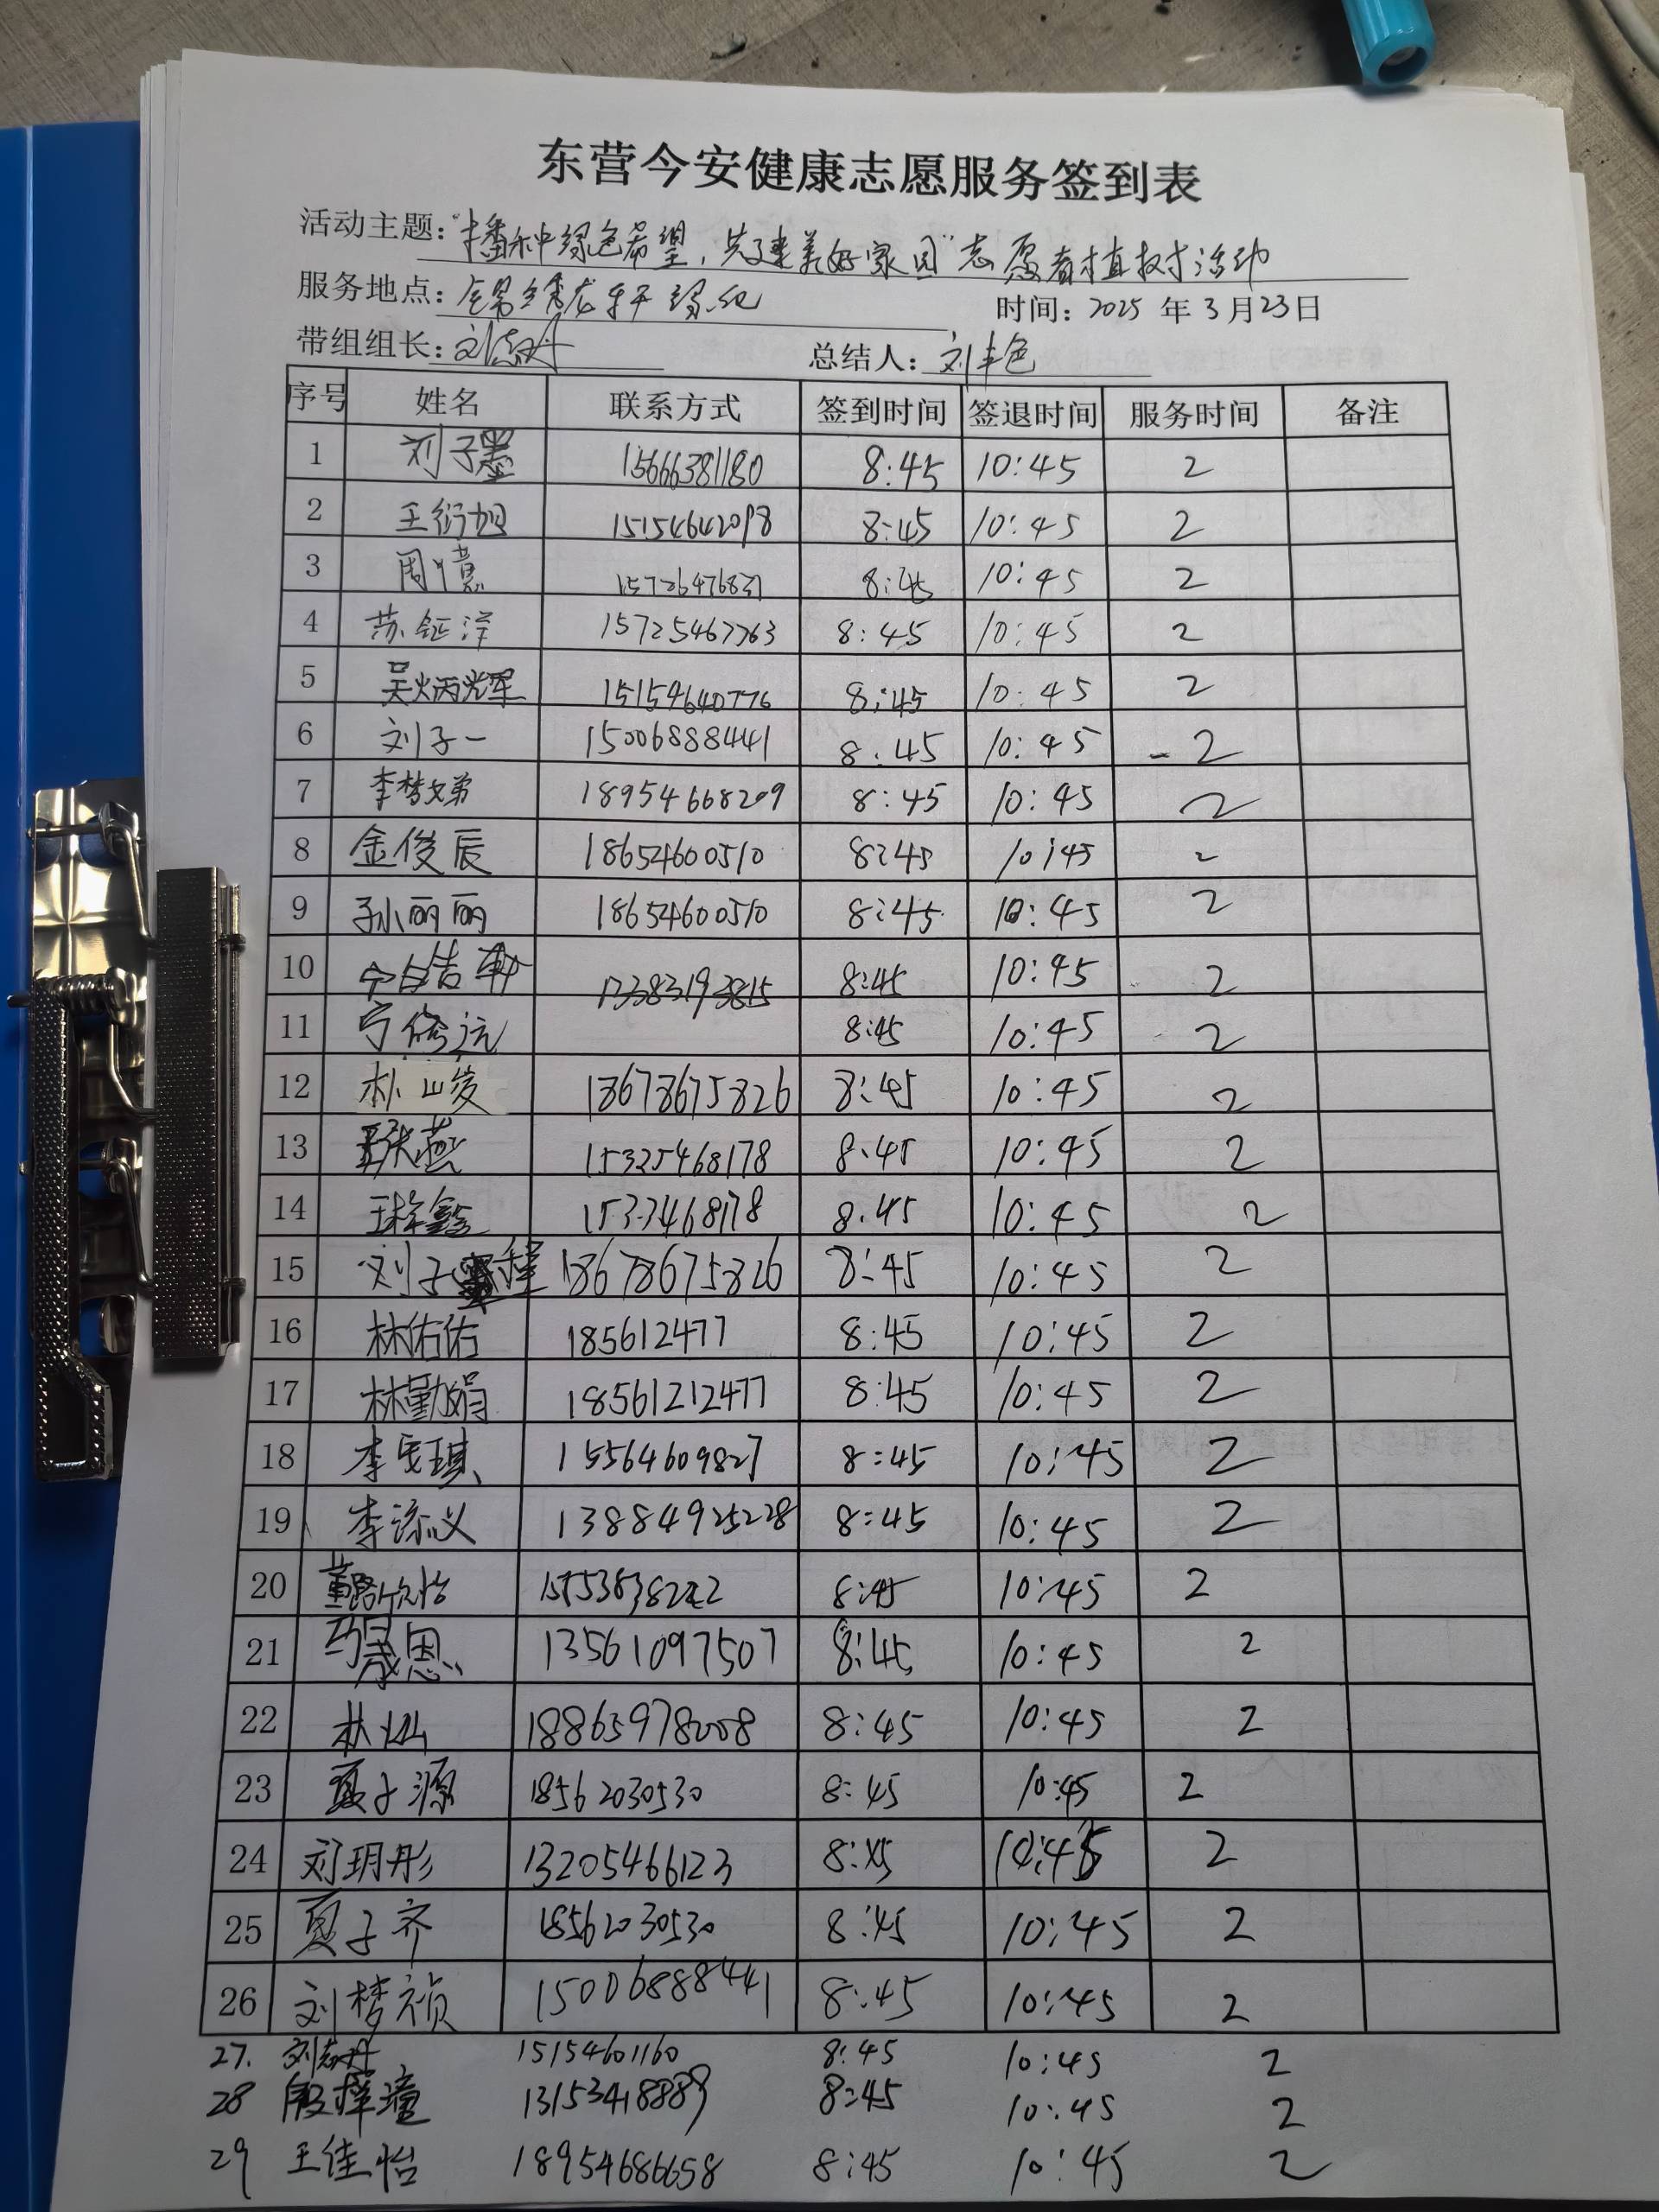 东营今安健康志愿服务签到表
活动主题:“播种绿色希望,共建美好家园”志愿者植树活动
服务地点:
时间:2025 年 3 月 23 日
带组组长: 总结人:
序号 姓名 联系方式 签到时间 签退时间 服务时间 备注
1 刘子墨 15666381180 8:45 10:45 2
2 王衍旭 15154642098 8:45 10:45 2
3 周 15726476831 8:45 10:45 2
4 苏钲洋 15725467763 8:45 10:45 2
5 吴炳耀 15154640776 8:45 10:45 2
6 刘子一 15006888441 8:45 10:45 2
7 李梦娣 18954668209 8:45 10:45 2
8 金俊辰 18654600510 8:45 10:45 2
9 孙丽丽 18654600510 8:45 10:45 2
10 13383193815 8:45 10:45 2
11 宁修远 8:45 10:45 2
12 林峻 18678675826 8:45 10:45 2
13 燕 15325468178 8:45 10:45 2
14 王梓鑫 8:45 10:45 2
15 刘子瑾 18678675826 8:45 10:45 2
16 林佑佑 185612477 8:45 10:45 2
17 林勤娟 18561212477 8:45 10:45 2
18 李旻琪 15564609827 8:45 10:45 2
19 李添义 13884925228 8:45 10:45 2
20 董路欣怡 8:45 10:45 2
21 思 13561097507 8:45 10:45 2
22 林灿 18865978008 8:45 10:45 2
23 夏子源 18562030530 8:45 10:45 2
24 刘玥彤 13205466123 8:45 10:45 2
25 夏子齐 18562030530 8:45 10:45 2
26 刘梦祯 15006888441 8:45 10:45 2
27. 刘志丹 15154601160 8:45 10:45 2
28 殷梓潼 13153418889 8:45 10:45 2
29 王佳怡 18954686658 8:45 10:45 2